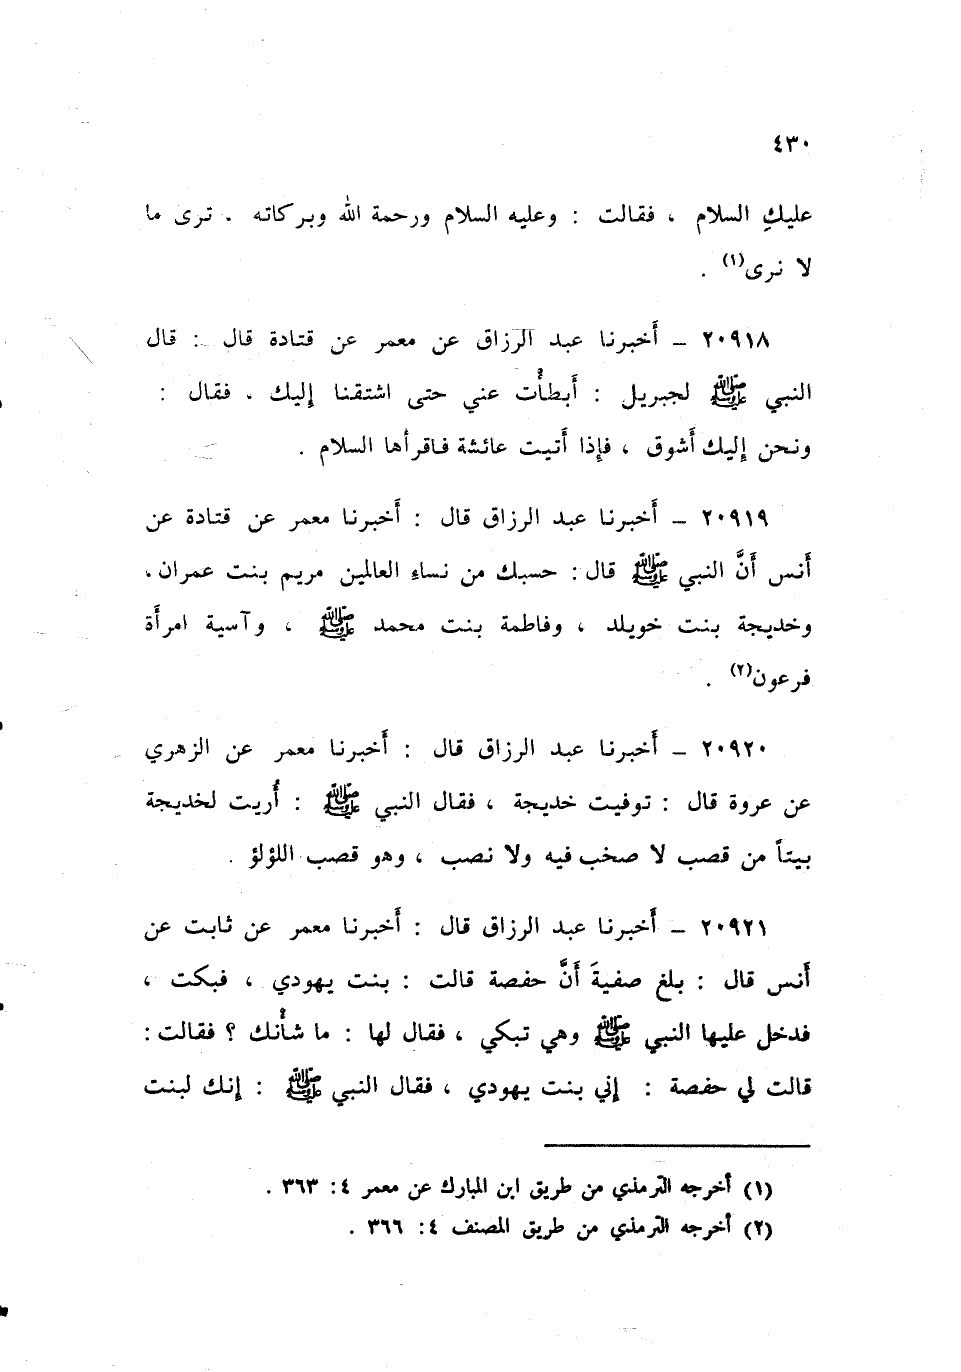 ٤٣٠
عليكِ السلام ، فقالت : وعليه السلام ورحمة الله وبركاته . ترى ما
لا نرى(١) .
٢٠٩١٨ – أَخبرنا عبد الرزاق عن معمر عن قتادة قال : قال
النبي ﷺ لجبريل : أَبطأْت عني حتى اشتقنا إليك . فقال :
ونحن إليك أَشوق ، فإذا أَتيت عائشة فاقرأها السلام .
٢٠٩١٩ – أَخبرنا عبد الرزاق قال : أَخبرنا معمر عن قتادة عن
أَنس أَنَّ النبي ﷺ قال : حسبك من نساءِ العالمين مريم بنت عمران ،
وخديجة بنت خويلد ، وفاطمة بنت محمد ﷺ ، وآسية امرأَة
فرعون(٢) .
٢٠٩٢٠ – أَخبرنا عبد الرزاق قال : أَخبرنا معمر عن الزهري
عن عروة قال : توفيت خديجة ، فقال النبي ﷺ : أُريت لخديجة
بيتاً من قصب لا صخب فيه ولا نصب ، وهو قصب اللؤلؤ .
٢٠٩٢١ – أَخبرنا عبد الرزاق قال : أَخبرنا معمر عن ثابت عن
أَنس قال : بلغ صفيةَ أَنَّ حفصة قالت : بنت يهودي ، فبكت ،
فدخل عليها النبي ﷺ وهي تبكي ، فقال لها : ما شأْنك ؟ فقالت :
قالت لي حفصة : إني بنت يهودي ، فقال النبي ﷺ : إنك لبنت
(١) أخرجه الترمذي من طريق ابن المبارك عن معمر ٤: ٣٦٣ .
(٢) أخرجه الترمذي من طريق المصنف ٤: ٣٦٦ .